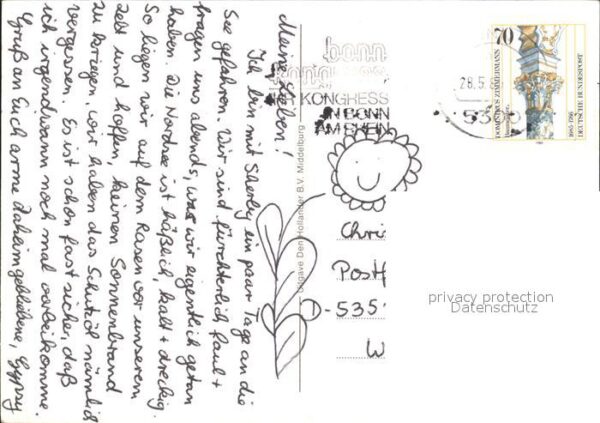 Meine Lieben!
Ich bin mit Sherby ein paar Tage an die
See gefahren. Wir sind fürchterlich faul +
fragen uns abends, was wir eigentlich getan
haben. Die Nordsee ist häßlich, kalt + dreckig.
So liegen wir auf dem Rasen vor unserem
Zelt und hoffen, keinen Sonnenbrand
zu kriegen, wir haben das Schutzöl nämlich
vergessen. Es ist schon fast sicher, daß
ich irgendwann noch mal vorbeikomme.
Gruß an Euch arme Daheimgebliebene, Gypsy
Uitgave Den Hollander B.V. Middelburg
bonn
KONGRESS
IN BONN
AM RHEIN
28.5.8
535
70
DOMINIKUS ZIMMERMANN
DEUTSCHE BUNDESPOST
1685-1766
Chri
Postf
D-535
W
privacy protection
Datenschutz